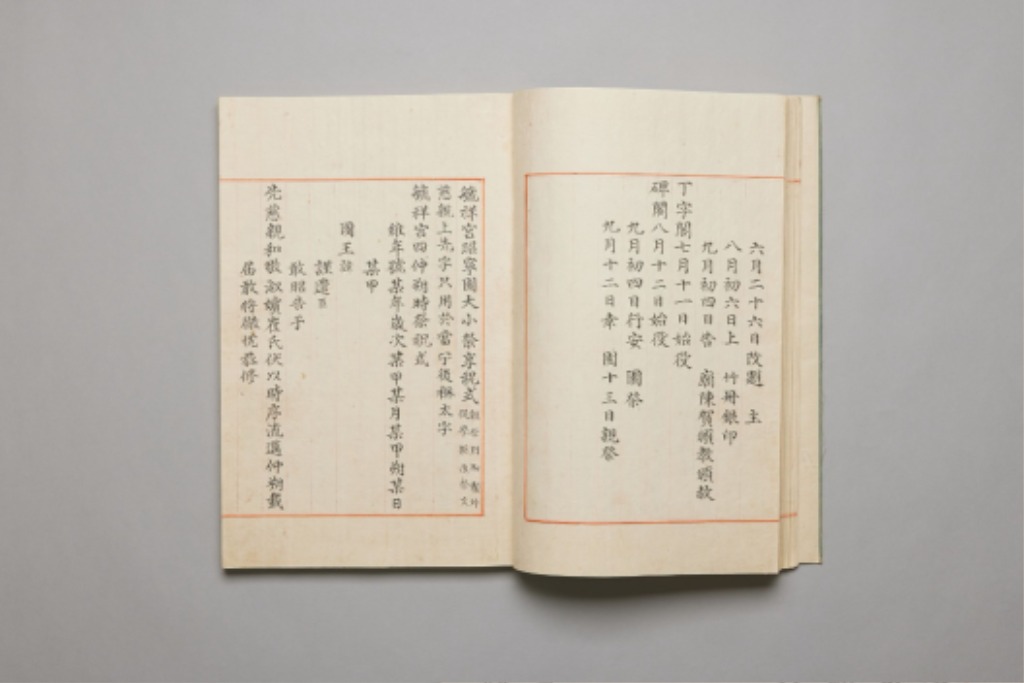 六月二十六日改題 主
八月初六日上 竹冊銀印
九月初四日告 廟陳賀頒教頒赦
丁字閣七月十一日始役
碑閣八月十二日始役
九月初四日行安 園祭
九月十二日幸 園十三日親祭
毓祥宮昭寧園大小祭享祝式
慈親上先字只用於當宁後稱太字
毓祥宮四仲朔時祭祝式
維年號某年歲次某甲某月某甲朔某日
某甲
國王諱
謹遣臣
敢昭告于
先慈親和敬淑嬪崔氏伏以時序流邁仲朔載
届敢將
恭修